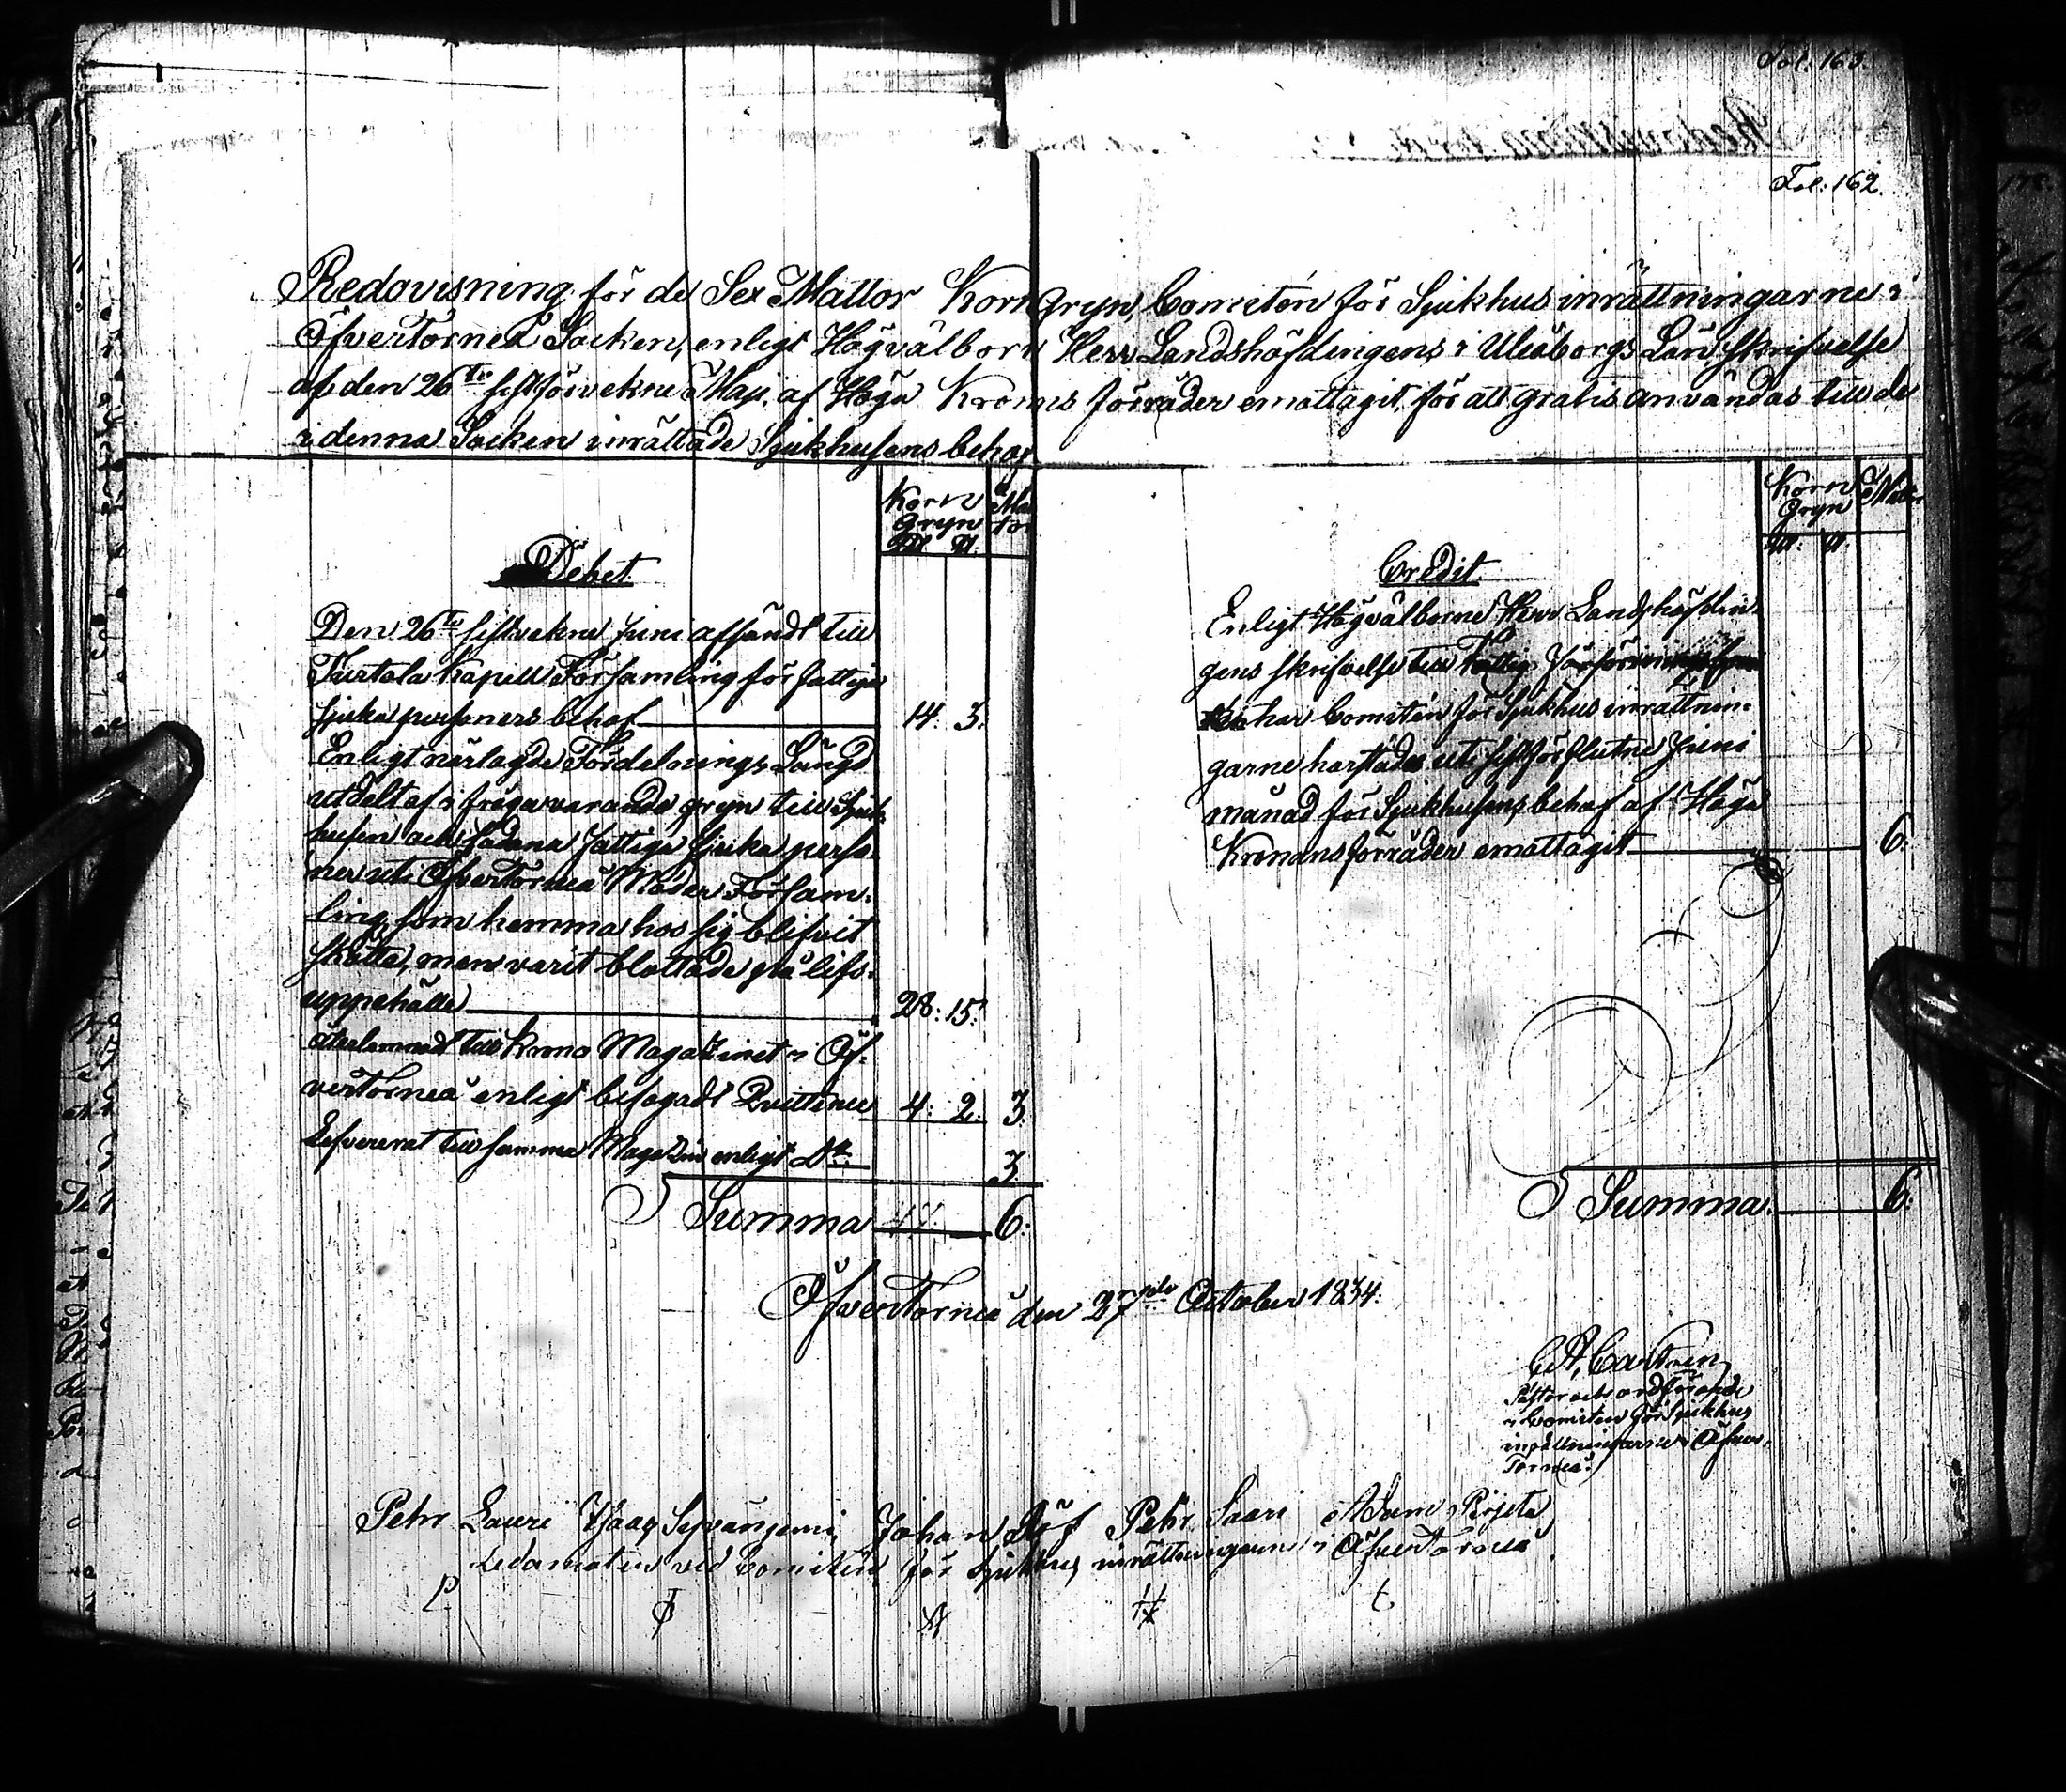 Fol. 163.
Fol: 162.
Redovisning för de Sex Mattor Korn Gryn, Comitén för Sjukhus inrättningarne i
Öfvertorneå Socken, enligt Högvälborn Herr Landshöfdingens i Uleåborgs Län skrifvelse
af den 26te sistförvekne Maji, af Höga Kronans förråder emottagit, för att gratis användas till de
i denna Socken inrättade Sjukhusens behof
Debet
Korn Gryn
Mattor
Den 26te sistvekne Juni afsändt till
Turtola Kapell Församling för fattiga
sjuka personers behof 14. 3.
Enligt närlagde Fördelnings Längd
utdelt af i frågavarande gryn till Sjuk
husen och sådana fattiga sjuka perso
ner uti Öfvertorneå Moder Försam-
ling, som hemma hos sig blifvit
skötta, men varit blottade på lifs-
uppehälle 28: 15.
återlemnadt till Krono Magazinet i Öf-
vertorneå enligt bifogadt Qvittence 4: 2: 3.
Lefvererat till samma Magazin enligt Dt. 3
Summa 47. 6:
Credit
Korn Gryn
Mattor
Enligt Högvälborne Herr Landshöfdin-
gens skrifvelse till
har Comitén för Sjukhus inrättnin-
garne härstädes uti sistförflutne Juni
månad för Sjukhusens behof af Höga
Kronans förråder emottagit 6.
Summa 6.
Öfvertorneå den 27 October 1834.
C A, Castrén
Pastor och ordförande
i Comitén för Sjukhus
inrättningarne i Öfver-
Torneå.
Petr Lauri Isaac Johan Petr Saari Adam
Ledamöter vid Comitén för Sjukhus inrättningarne i Öfvertorneå